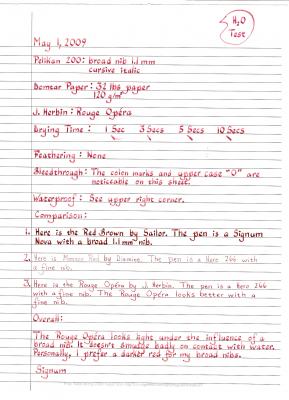 H₂O
Test
May 1, 2009
Pelikan 200: broad nib 1.1 mm
cursive italic
Domtar Paper: 32 lbs paper
120 g/m²
J. Herbin: Rouge Opéra
Drying Time: 1 Sec 3 Secs 5 Secs 10 Secs
Feathering: None
Bleedthrough: The colon marks and upper case "O" are
noticeable on this sheet.
Waterproof: See upper right corner.
Comparison:
1. Here is the Red Brown by Sailor. The pen is a Signum
Nova with a broad 1.1 mm nib.
2. Here is Monaco Red by Diamine. The pen is a Hero 266 with
a fine nib.
3. Here is the Rouge Opéra by J. Herbin. The pen is a Hero 266
with a fine nib. The Rouge Opéra looks better with a
fine nib.
Overall:
The Rouge Opéra looks light under the influence of a
broad nib. It doesn't smudge badly on contact with water.
Personally, I prefer a darker red for my broad nibs.
Signum